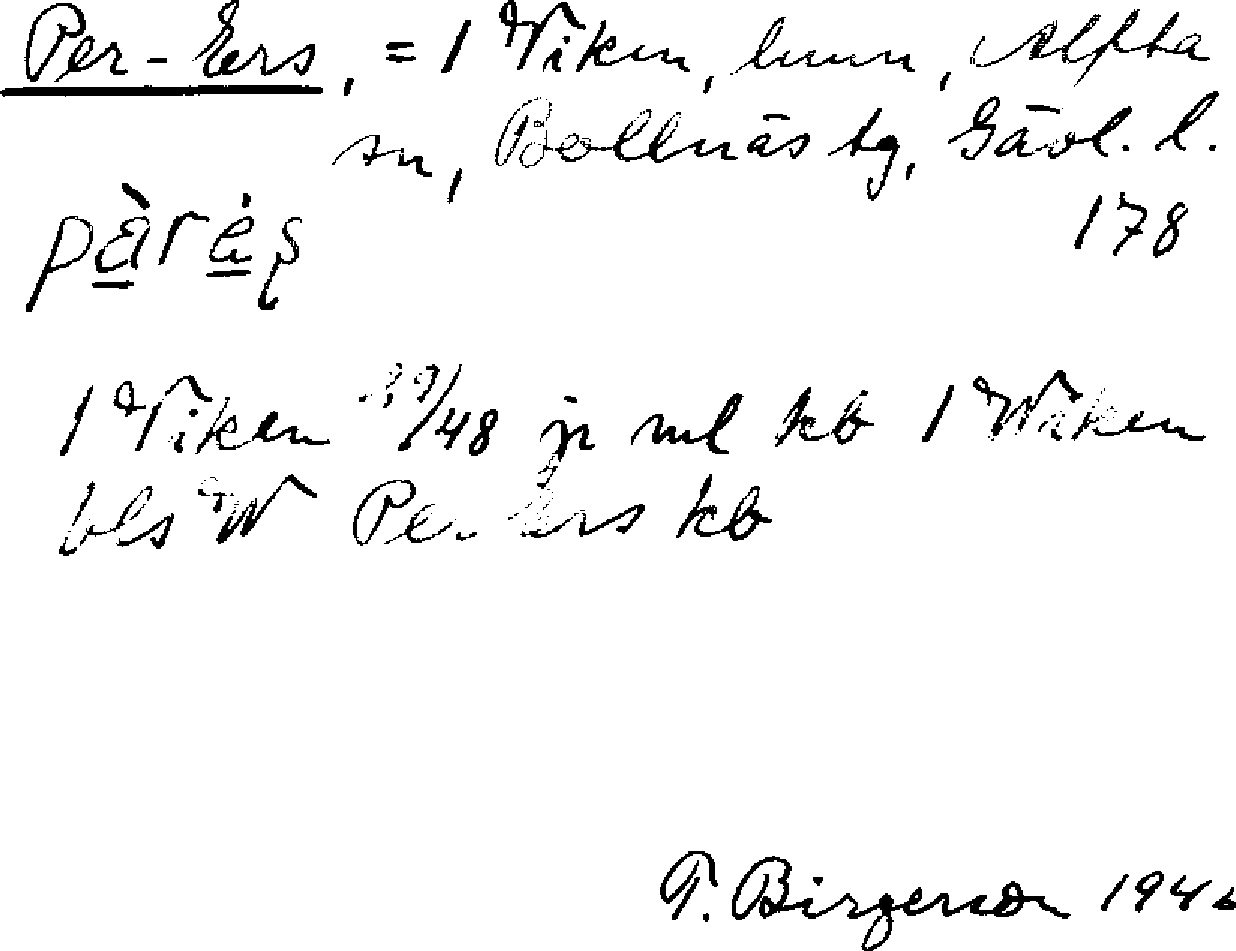 Per-Ers, = 1 Viken, hmn, Alfta
sn, Bollnäs tg, Gävl. l.
pàrės 178
1 Viken /48 jr ml kb 1 Wiken
bls W Per Ers kb
T. Birgerson 1946